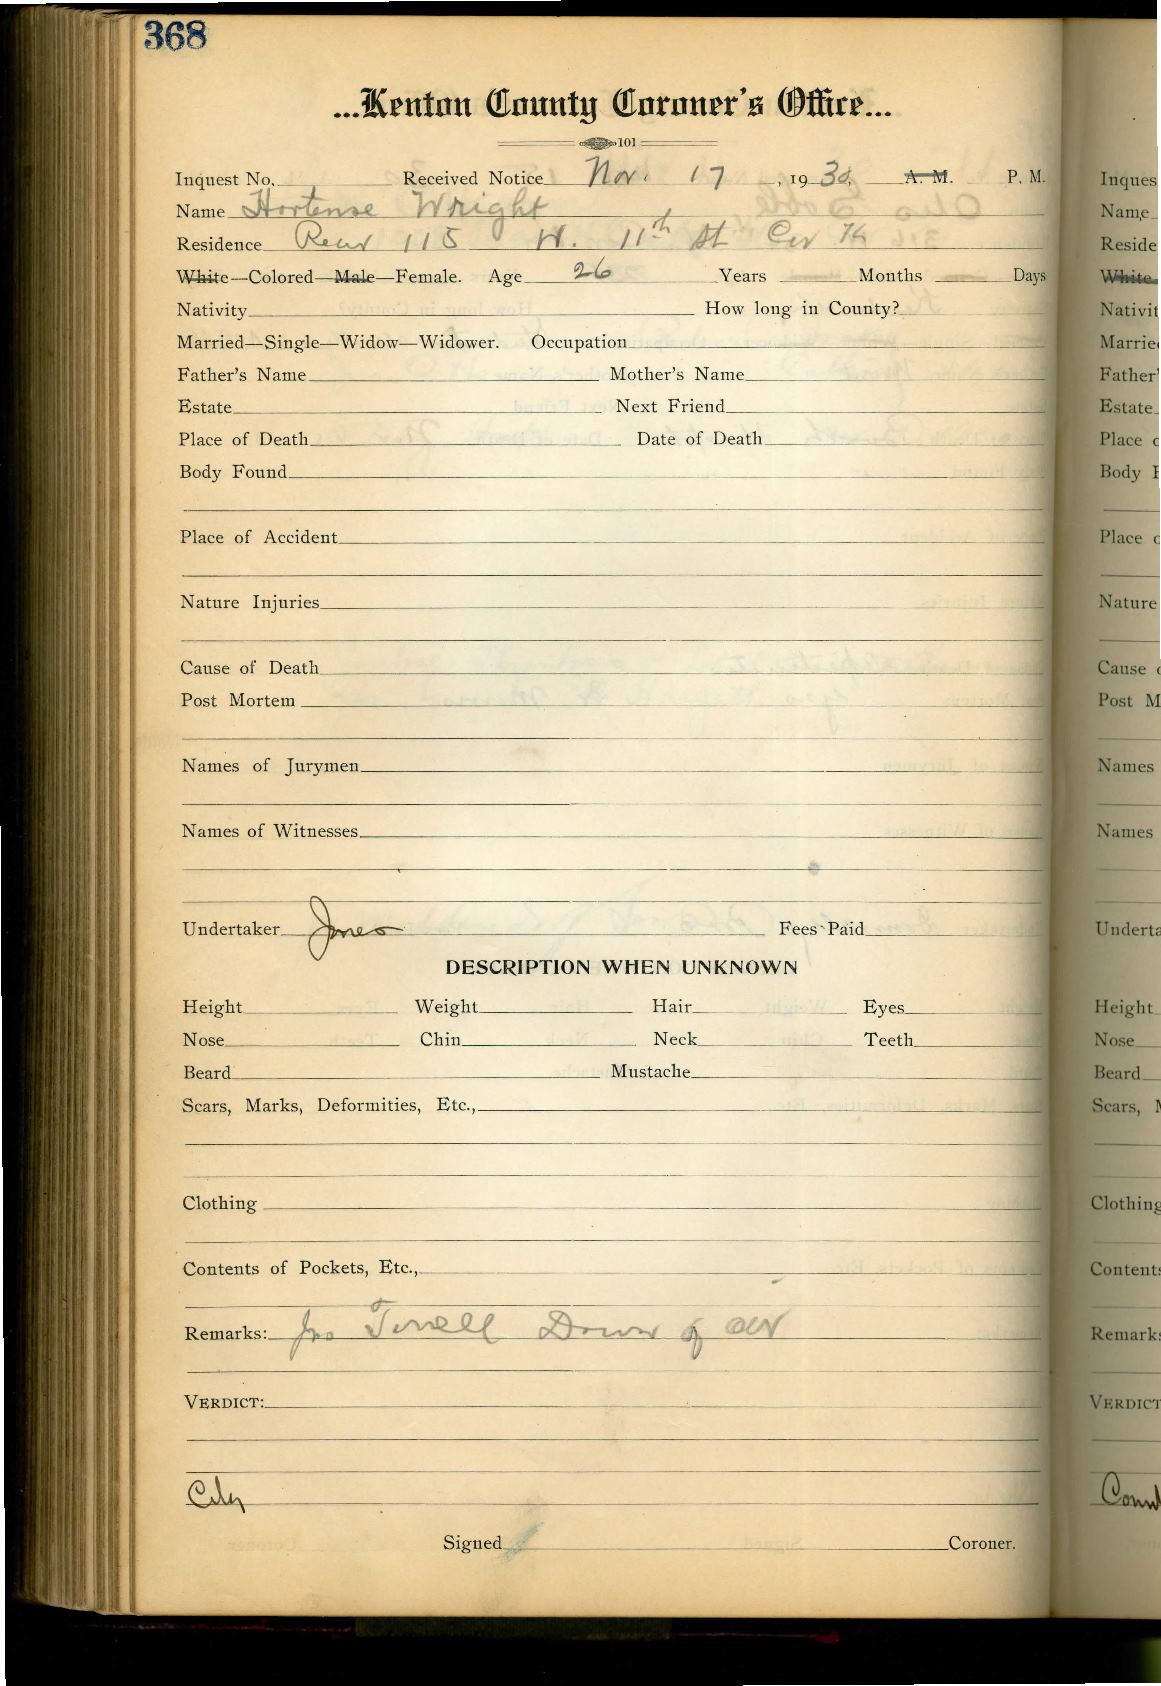 368
...Kenton County Coroner's Office...
101
Inquest No. Received Notice Nov. 17, 1930, A. M. P. M.
Name Hortense Wright
Residence Rear 115 W. 11th St Cov
White—Colored—Male—Female. Age 26 Years Months Days
Nativity How long in County?
Married—Single—Widow—Widower. Occupation
Father's Name Mother's Name
Estate Next Friend
Place of Death Date of Death
Body Found
Place of Accident
Nature Injuries
Cause of Death
Post Mortem
Names of Jurymen
Names of Witnesses
Undertaker Jones Fees Paid
DESCRIPTION WHEN UNKNOWN
Height Weight Hair Eyes
Nose Chin Neck Teeth
Beard Mustache
Scars, Marks, Deformities, Etc.,
Clothing
Contents of Pockets, Etc.,
Remarks: of
VERDICT:
City
Signed Coroner.
Inques
Name
Reside
White
Nativit
Marrie
Father'
Estate
Place o
Body F
Place o
Nature
Cause o
Post M
Names
Names
Underta
Height
Nose
Beard
Scars, M
Clothing
Contents
Remarks
VERDICT